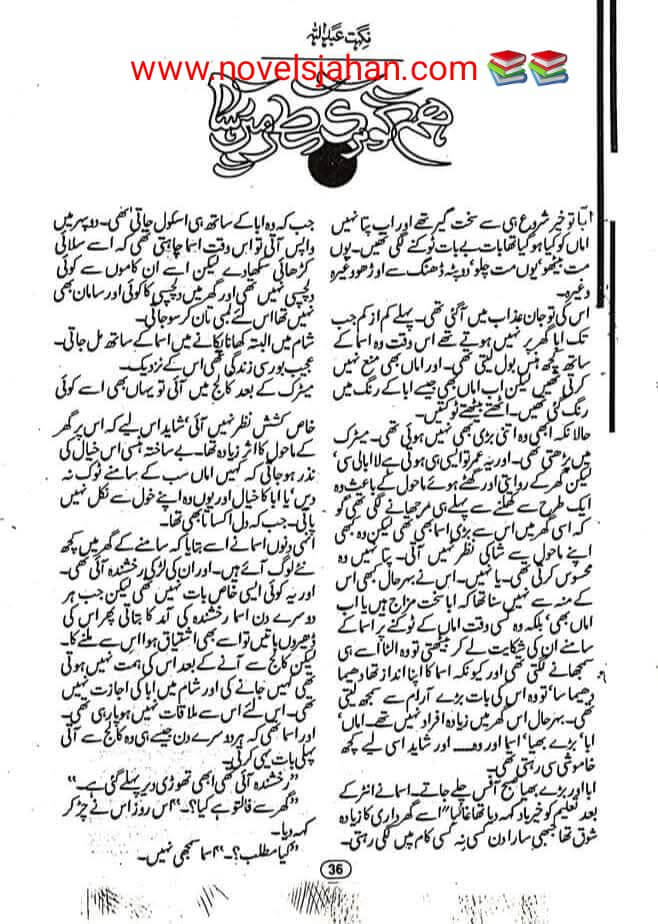 نگہت عبداللہ
www.novelsjahan.com
ابا تو خیر شروع ہی سے سخت گیر تھے اور اب پتا نہیں
اماں کو کیا ہو گیا تھا بات بے بات ٹوکنے لگی تھیں۔ یوں
مت بیٹھو، یوں مت چلو، دوپٹہ ڈھنگ سے اوڑھو وغیرہ
وغیرہ۔
اس کی تو جان عذاب میں آ گئی تھی۔ پہلے کم از کم جب
تک ابا گھر پر نہیں ہوتے تھے اس وقت وہ اسما کے
ساتھ کچھ ہنس بول لیتی تھی۔ اور اماں بھی منع نہیں
کرتی تھیں لیکن اب اماں بھی جیسے ابا کے رنگ میں
رنگ گئی تھیں۔ اٹھتے بیٹھتے ٹوکتیں۔
حالانکہ ابھی وہ اتنی بڑی بھی نہیں ہوئی تھی۔ میٹرک
میں پڑھتی تھی۔ اور یہ عمر تو ایسی ہی ہوتی ہے لا ابالی سی،
لیکن گھر کے روایتی اور گھٹے ہوئے ماحول کے باعث وہ
ایک طرح سے کھلنے سے پہلے ہی مرجھانے لگی تھی گو
کہ اسی گھر میں اس سے بڑی اسما بھی تھی لیکن وہ کبھی
اپنے ماحول سے شاکی نظر نہیں آئی۔ پتا نہیں وہ
محسوس کرتی تھی۔ یا نہیں۔ اس نے بہرحال بھی اس
کے منہ سے نہیں سنا تھا کہ ابا سخت مزاج ہیں یا اب
اماں بھی، بلکہ وہ کسی وقت اماں کے ٹوکنے پر اسما کے
سامنے ان کی شکایت لے کر بیٹھتی تو وہ الٹا اسے ہی
سمجھانے لگتی تھی اور کیونکہ اسما کا اپنا انداز تھا دھیما
دھیما سا، تو وہ اس کی بات بڑے آرام سے سمجھ لیتی
تھی۔ بہرحال اس گھر میں زیادہ افراد نہیں تھے۔ اماں،
ابا، بڑے بھیا، اسما اور وہ۔۔۔ اور شاید اسی لیے کچھ
خاموشی سی رہتی تھی۔
ابا اور بڑے بھیا صبح آفس چلے جاتے۔ اسما نے انٹر کے
بعد تعلیم کو خیر باد کہہ دیا تھا غالباً اسے گھر داری کا زیادہ
شوق تھا جبھی سارا دن کسی نہ کسی کام میں لگی رہتی۔
جب کہ وہ ابا کے ساتھ ہی اسکول جاتی تھی۔ دوپہر میں
واپس آتی تو اس وقت اسما چاہتی تھی کہ اسے سلائی
کڑھائی سکھا دے لیکن اسے ان کاموں سے کوئی
دلچسپی نہیں تھی اور گھر میں دلچسپی کا کوئی اور سامان بھی
نہیں تھا اس لیے لمبی تان کر سو جاتی۔
شام میں البتہ کھانا پکانے میں اسما کے ساتھ مل جاتی۔
عجیب بور سی زندگی تھی اس کے نزدیک۔
میٹرک کے بعد کالج میں آئی تو یہاں بھی اسے کوئی
خاص کشش نظر نہیں آئی، شاید اس لیے کہ اس پر گھر
کے ماحول کا اثر زیادہ تھا۔ بے ساختہ ہنسی اس خیال کی
نذر ہو جاتی کہ کہیں اماں سب کے سامنے ٹوک نہ
دیں، یا ابا کا خیال اور یوں وہ اپنے خول سے نکل نہیں
پاتی۔ جب کہ دل اکساتا بھی تھا۔
انہی دنوں اسما نے اسے بتایا کہ سامنے کے گھر میں کچھ
نئے لوگ آئے ہیں۔ اور ان کی لڑکی رخشندہ آئی تھی۔
اور یہ کوئی ایسی خاص بات نہیں تھی لیکن جب ہر
دوسرے دن اسما رخشندہ کی آمد کا بتاتی پھر اس کی
ڈھیروں باتیں تو اسے بھی اشتیاق ہوا اس سے ملنے کا۔
لیکن کالج سے آنے کے بعد اس کی ہمت نہیں ہوتی
تھی کہیں جانے کی اور شام میں ابا کی اجازت نہیں
تھی۔ اس لیے اس سے ملاقات نہیں ہو پا رہی تھی۔
اور اسما تھی کہ ہر دوسرے دن جیسے ہی وہ کالج سے آتی
پہلی بات یہی کرتی۔
”رخشندہ آئی تھی ابھی تھوڑی دیر پہلے گئی ہے۔“
”گھر سے فالتو ہے کیا؟۔“ اس روز اس نے چڑ کر
کہہ دیا۔
”کیا مطلب؟۔“ اسما سمجھی نہیں۔
36